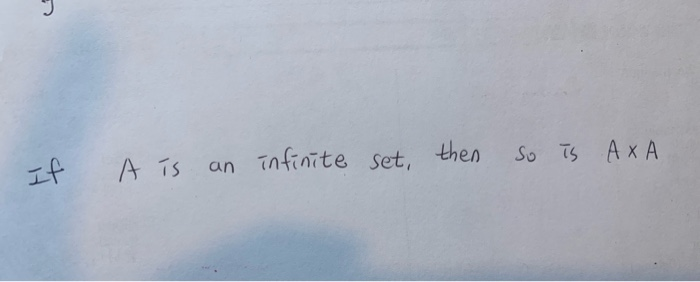 If A is an infinite set, then so is A x A